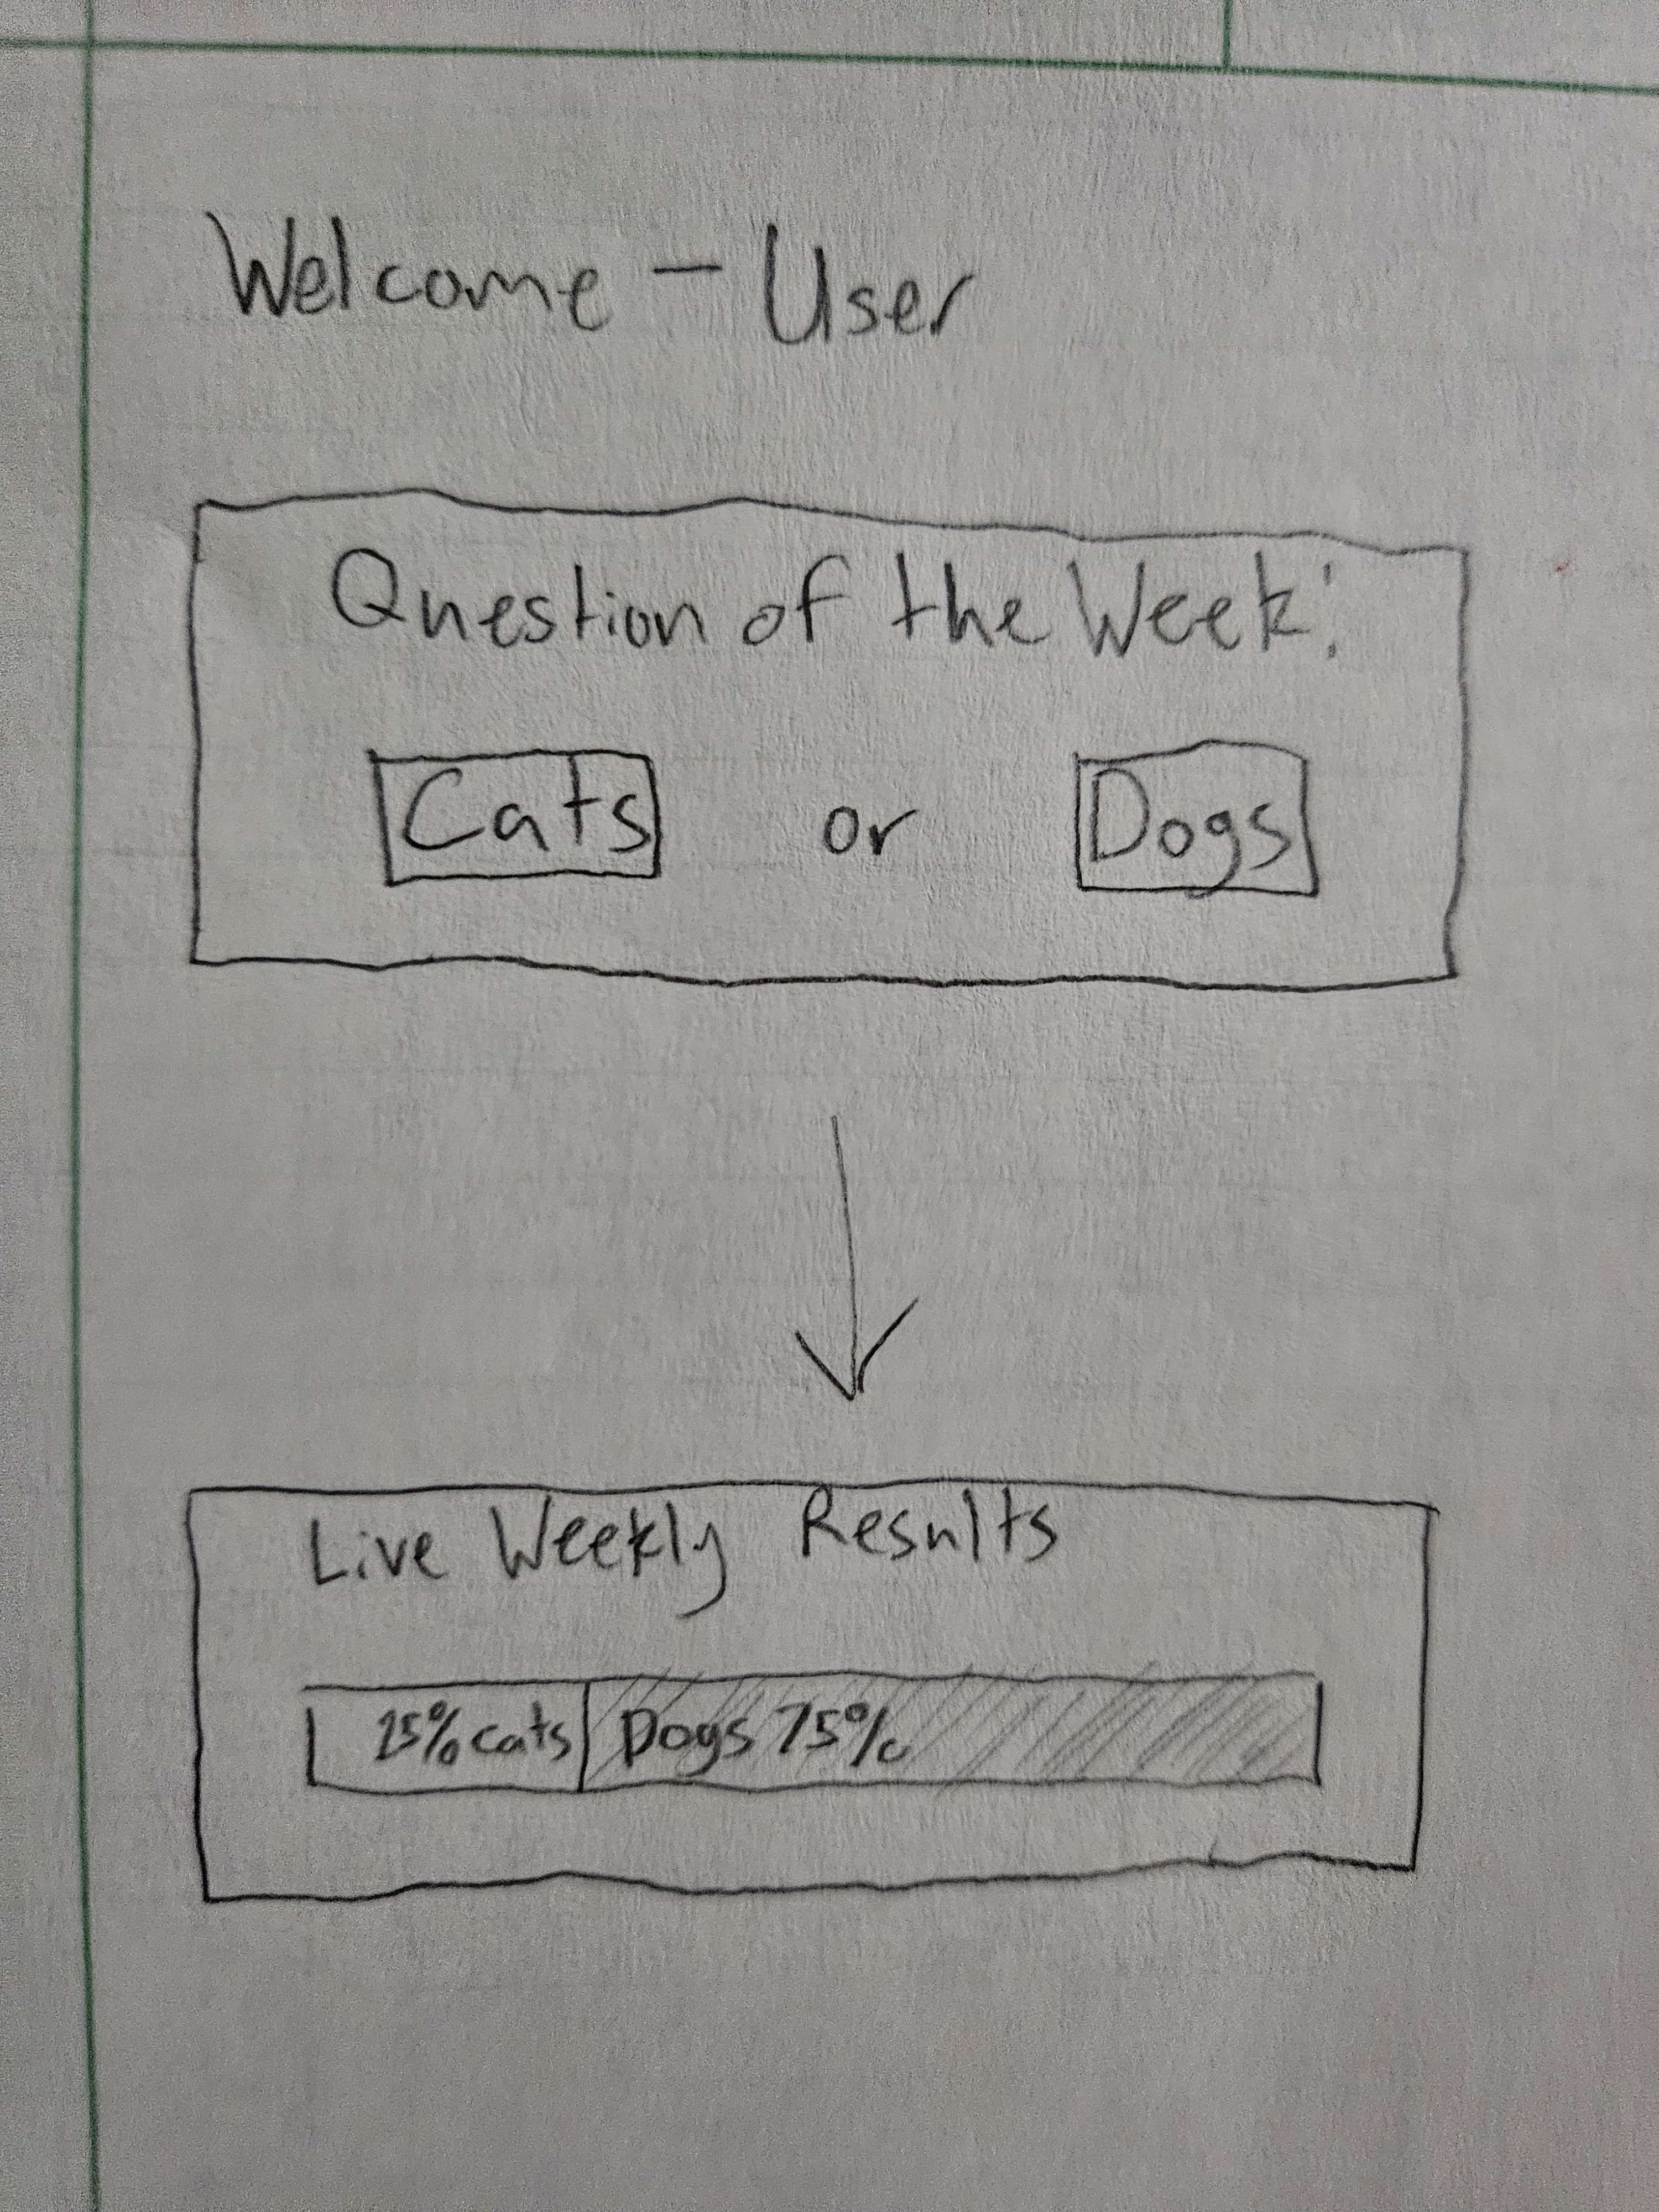 Welcome - User
Question of the Week:
Cats or Dogs
Live Weekly Results
25% cats Dogs 75%